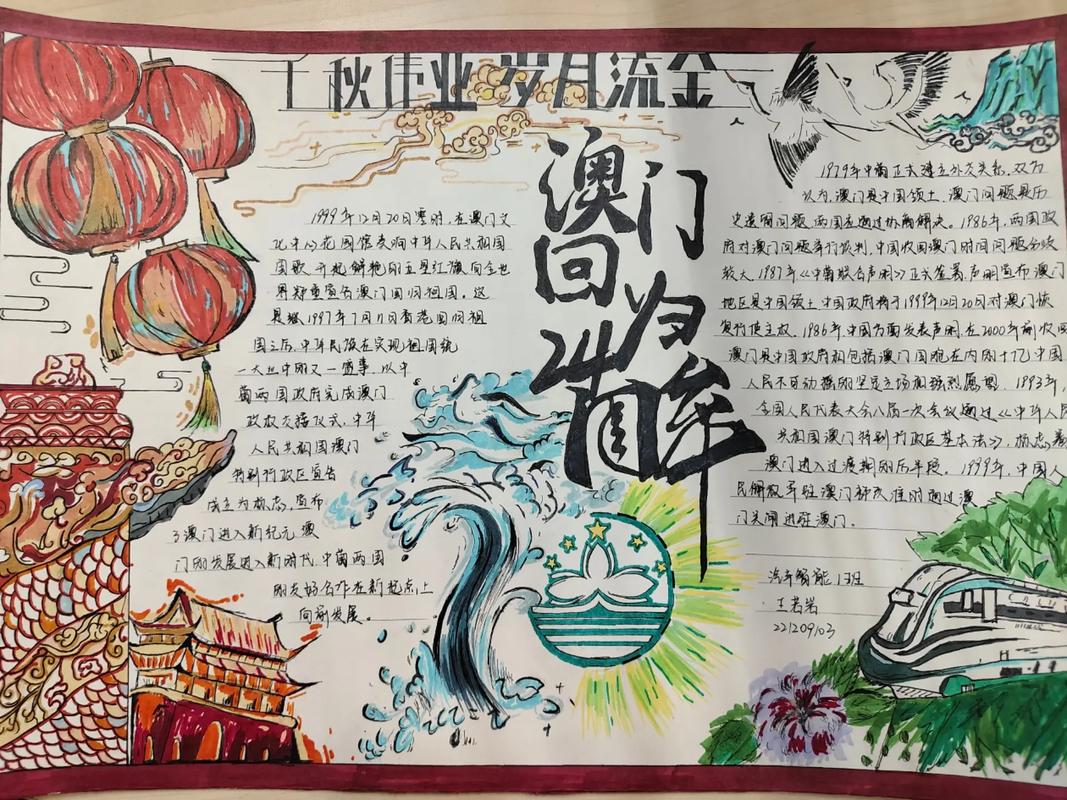 千秋伟业 岁月流金
澳门
回归
回眸
1999年12月20日零时，在澳门文
化中心花园馆奏响中华人民共和国
国歌 升起鲜艳的五星红旗 向全世
界郑重宣告澳门回归祖国。这
是继1997年7月1日香港回归祖
国之后，中华民族在实现祖国统
一大业中的又一盛事，以中
葡两国政府完成澳门
政权交接仪式，中华
人民共和国澳门
特别行政区宣告
成立为标志，宣布
了澳门进入新纪元 澳
门的发展进入新时代 中葡两国
的友好合作在新起点上
向前发展。
1979年中葡正式建立外交关系，双方
认为，澳门是中国领土，澳门问题是历
史遗留问题，两国在通过协商解决。1986年，两国政
府对澳门问题举行谈判，中国收回澳门时间问题分歧
较大 1987年《中葡联合声明》正式签署，声明宣布澳门
地区是中国领土 中国政府将于1999年12月20日对澳门恢
复行使主权，1986年，中国方面发表声明，在2000年前收回
澳门是中国政府和包括澳门同胞在内的十亿中国
人民不可动摇的坚定立场和强烈愿望，1993年，
全国人民代表大会八届一次会议通过《中华人民
共和国澳门特别行政区基本法》，标志着
澳门进入过渡期的后半段。1999年，中国人
民解放军驻澳门部队准时通过澳
门关闸进驻澳门．
汽车智能1班
王若岩
22120903